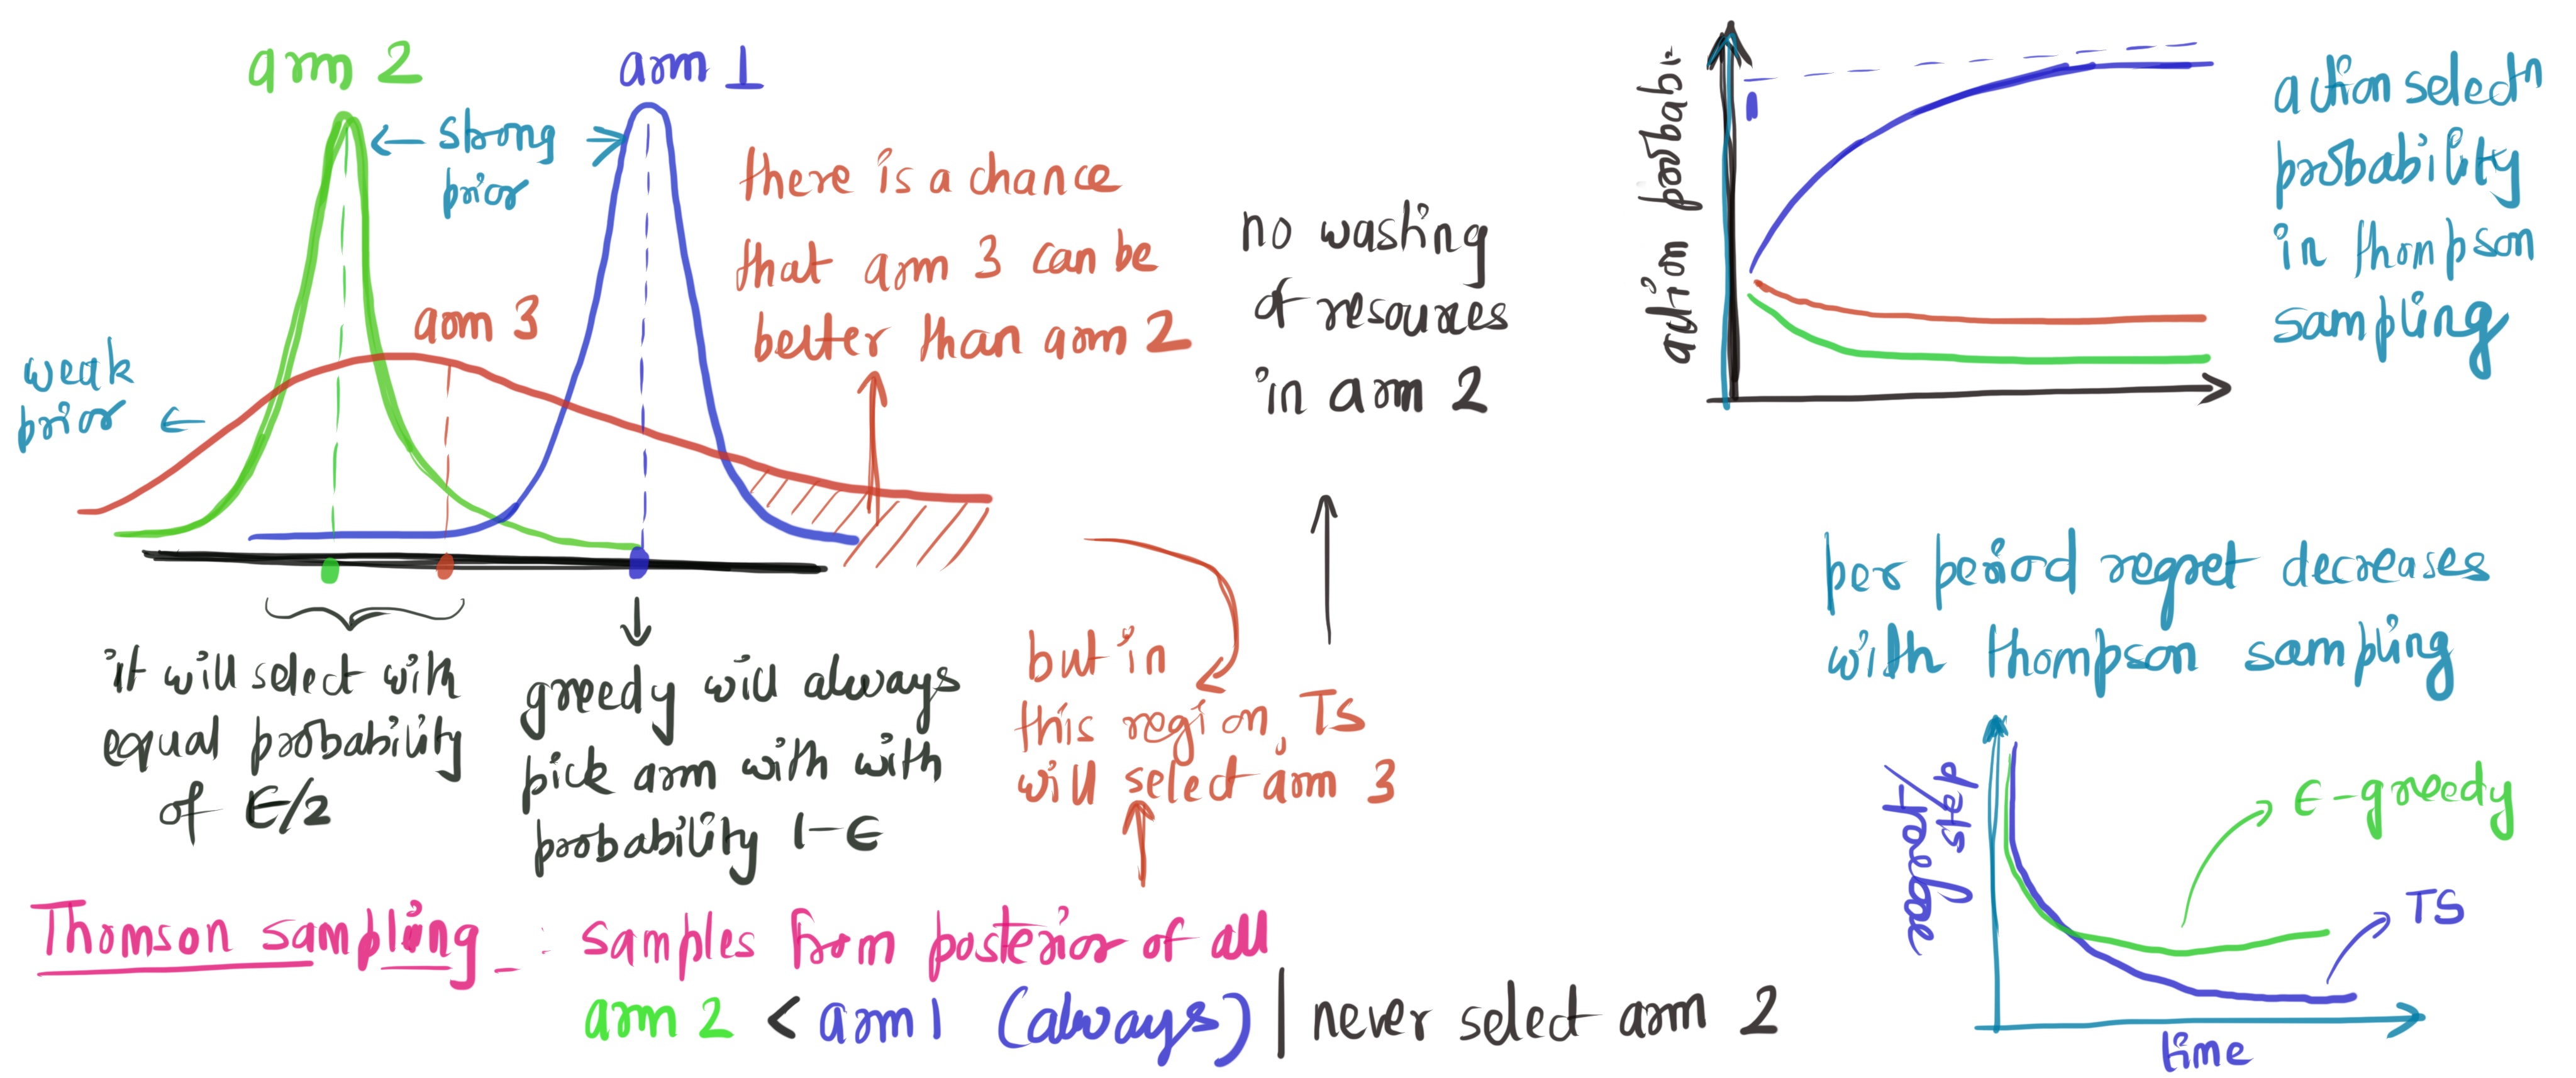 arm 2
arm 1
← strong →
prior
arm 3
weak
prior ←
there is a chance
that arm 3 can be
better than arm 2
no wasting
of resources
in arm 2
it will select with
equal probability
of ϵ/2
greedy will always
pick arm with with
probability 1-ϵ
but in
this region, TS
will select arm 3
Thomson sampling : samples from posterior of all
arm 2 < arm 1 (always) | never select arm 2
action probabi
1
action selectn
probability
in thompson
sampling
per period regret decreases
with thompson sampling
regret/
step
ϵ-greedy
TS
time